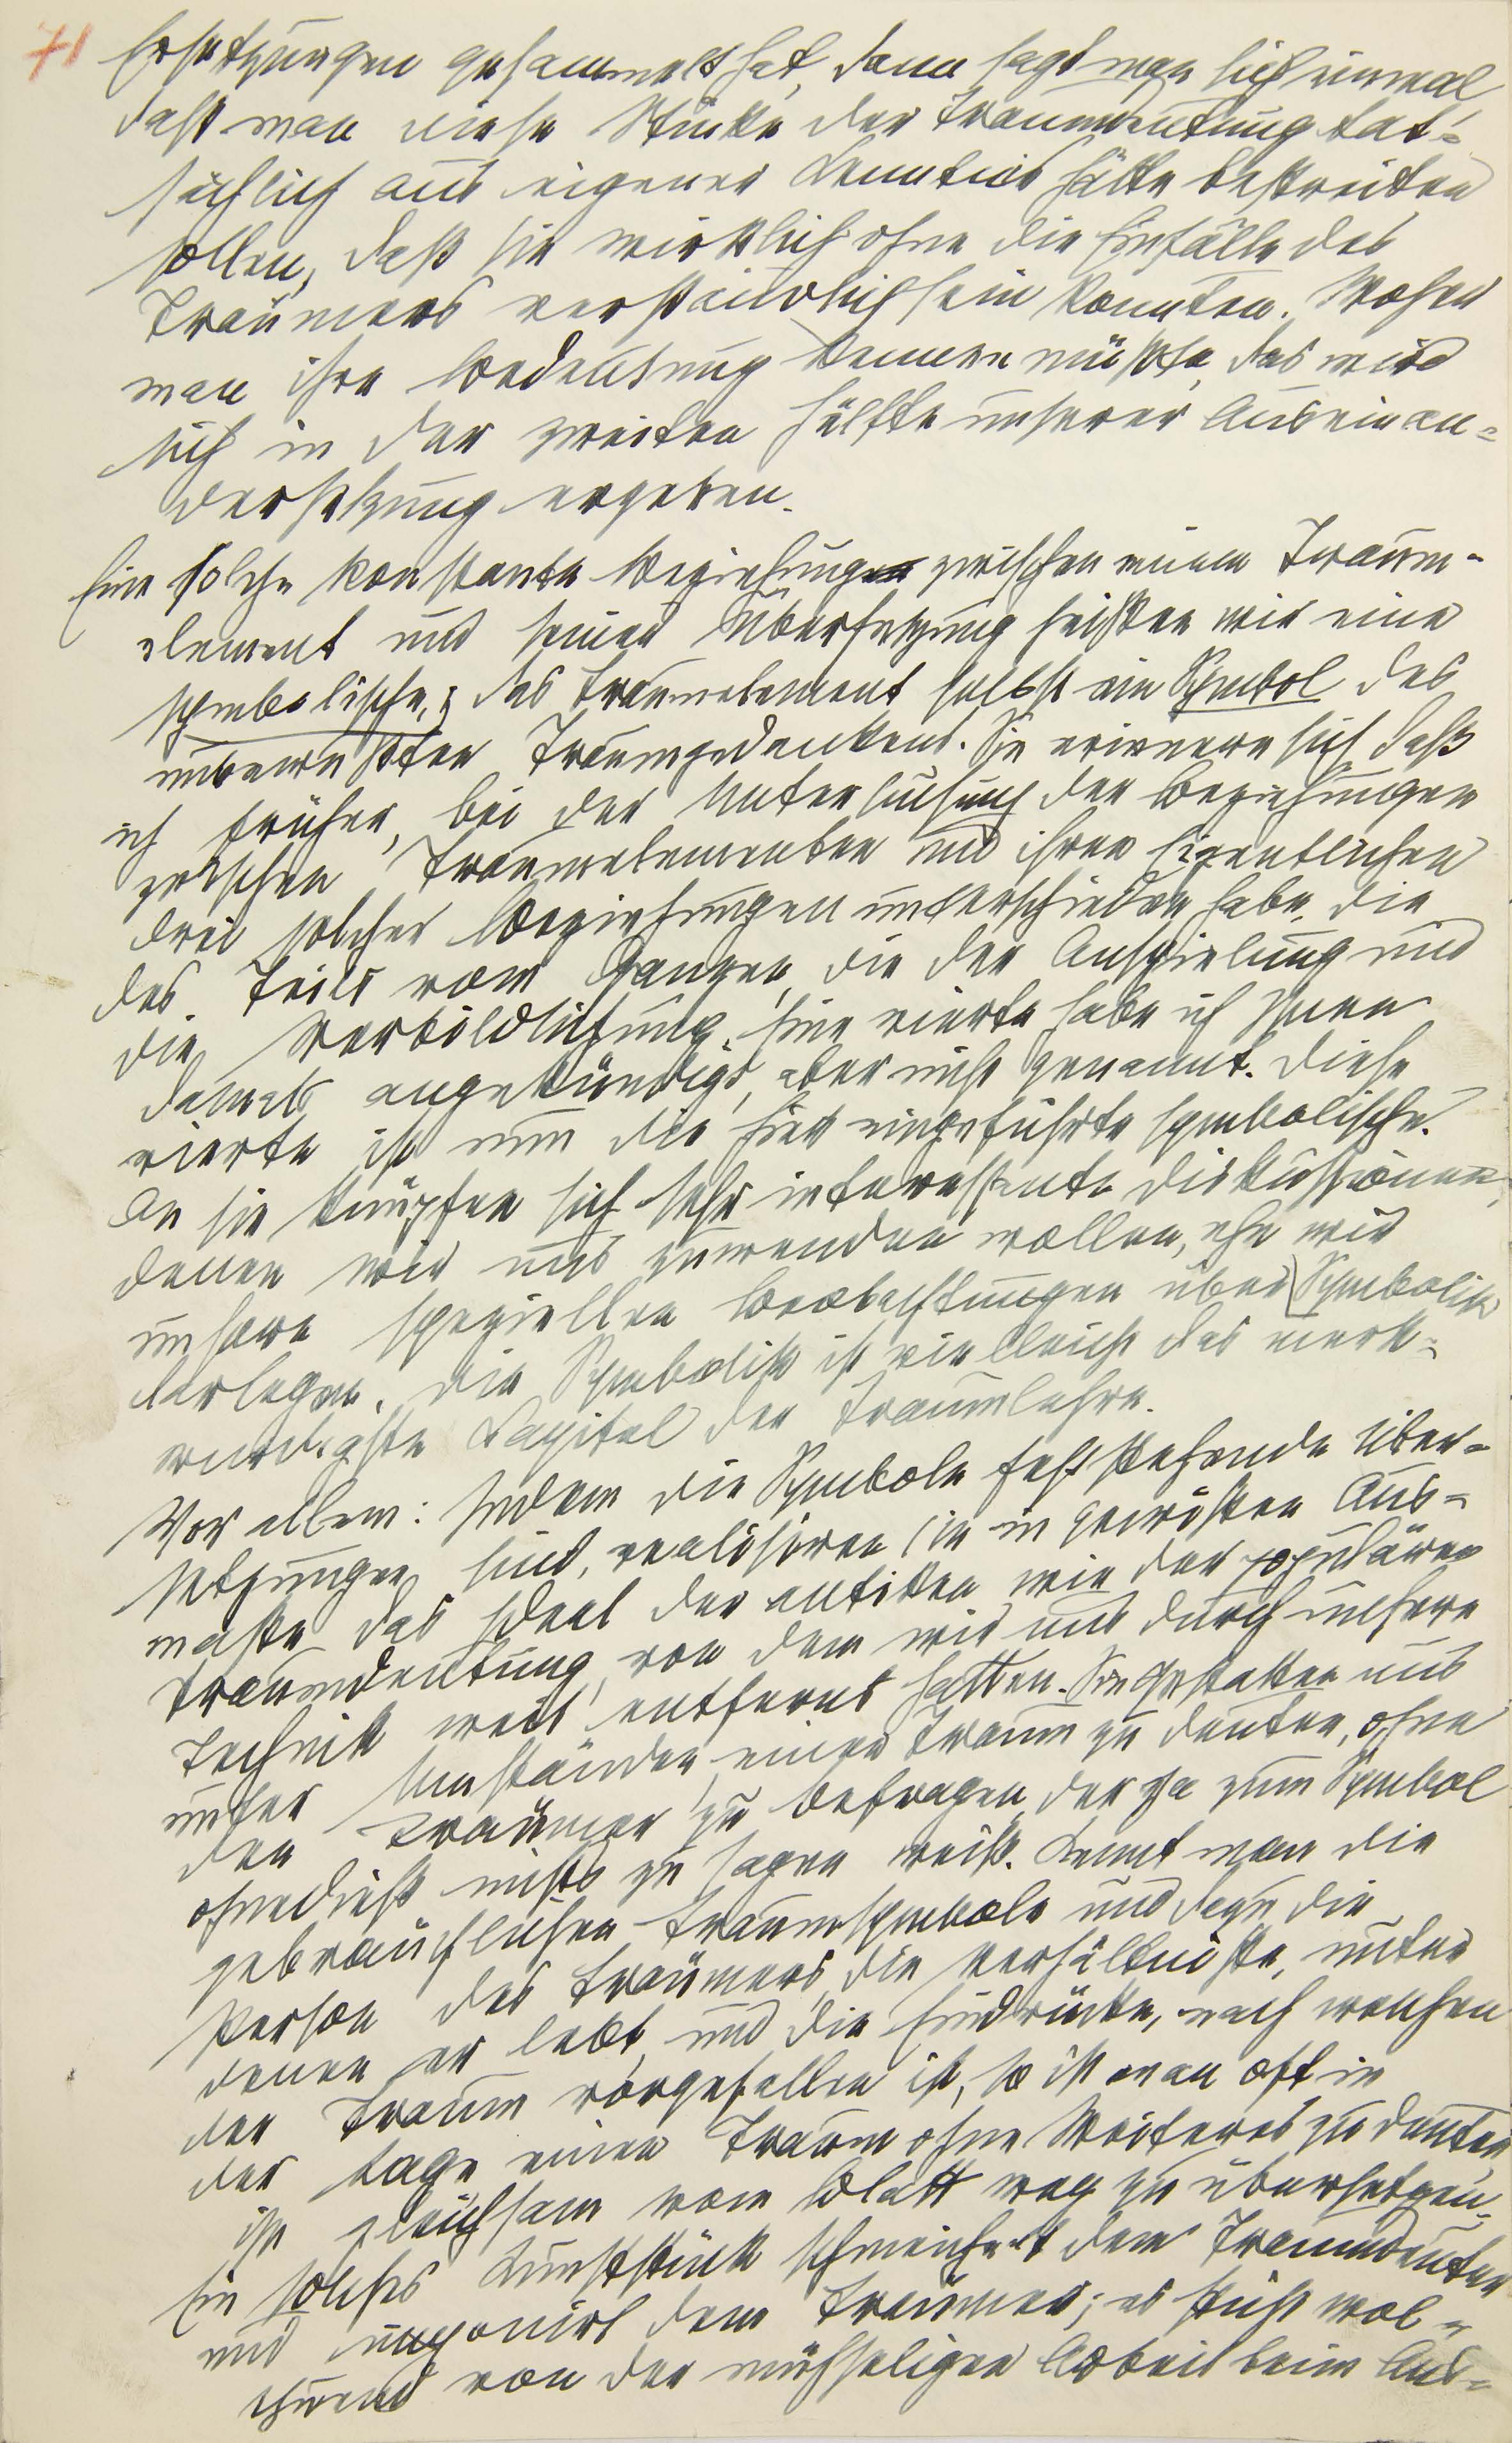 71
Ersetzungen gesammelt hat, dann sagt man sich einmal
daß man diese Stücke der Traumdeutung tat=
sächlich aus eigener Kenntnis hätte bestreiten
sollen, daß sie wirklich ohne die Einfälle des
Träumers verständlich sein konnten. Woher
man ihre Bedeutung kennen müßte, das wird
sich in der zweiten Hälfte unserer Auseinan=
dersetzung ergeben.
Eine solche konstante Beziehung zwischen einem Traum-
element und seiner Übersetzung heißen wir eine
symbolische, das Traumelement selbst ein Symbol des
unbewußten Traumgedankens. Sie erinnern sich daß
ich früher, bei der Untersuchung der Beziehungen
zwischen Traumelementen und ihren Eigentlichen
drei solcher Beziehungen unterschieden habe, die
des Teils vom Ganzen, die der Anspielung und
die Verbildlichung. Eine vierte habe ich Ihnen
damals angekündigt, aber nicht genannt. Diese
vierte ist nun die hier eingeführte symbolische.
An sie knüpfen sich sehr interessante Diskussionen,
denen wir uns zuwenden wollen, ehe wir
unsere speziellen Beobachtungen über Symbolik
darlegen. Die Symbolik ist vielleicht das merk=
würdigste Kapitel der Traumlehre.
Vor allem: Indem die Symbole feststehende Über=
setzungen sind, realisiren sie in gewißem Aus=
maße das Ideal der antiken wie der populären
Traumdeutung, von dem wir uns durch unsere
Technik weit entfernt hatten. Sie gestatten uns
unter Umständen, einen Traum zu deuten, ohne
den Träumer zu befragen, der ja zum Symbol
ohnedieß nichts zu sagen weiß. Kennt man die
gebräuchlichen Traumsymbole und dazu die
Person des Träumers, die Verhältniße, unter
denen er lebt, und die Eindrücke, nach welchen
der Traum vorgefallen ist, so ist man oft in
der Lage einen Traum ohne Weiteres zu deuten,
ihn gleichsam vom Blatt weg zu übersetzen.
Ein solches Kunststück schmeichelt dem Traumdeuter
und imponirt dem Träumer; es sticht wol=
thuend von der mühseligen Arbeit beim Aus=